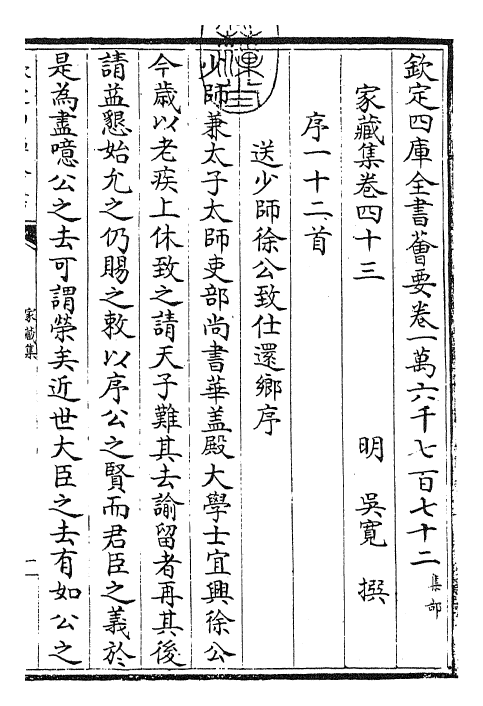 欽定四庫全書薈要卷一萬六千七百七十二 集部
家藏集卷四十三 明 吳寛 撰
序一十二首
送少師徐公致仕還鄉序
少師兼太子太師吏部尚書華盖殿大學士宜興徐公
今歲以老疾上休致之請天子難其去諭留者再其後
請益懇始允之仍賜之敕以序公之賢而君臣之義於
是為盡噫公之去可謂榮矣近世大臣之去有如公之
家藏集